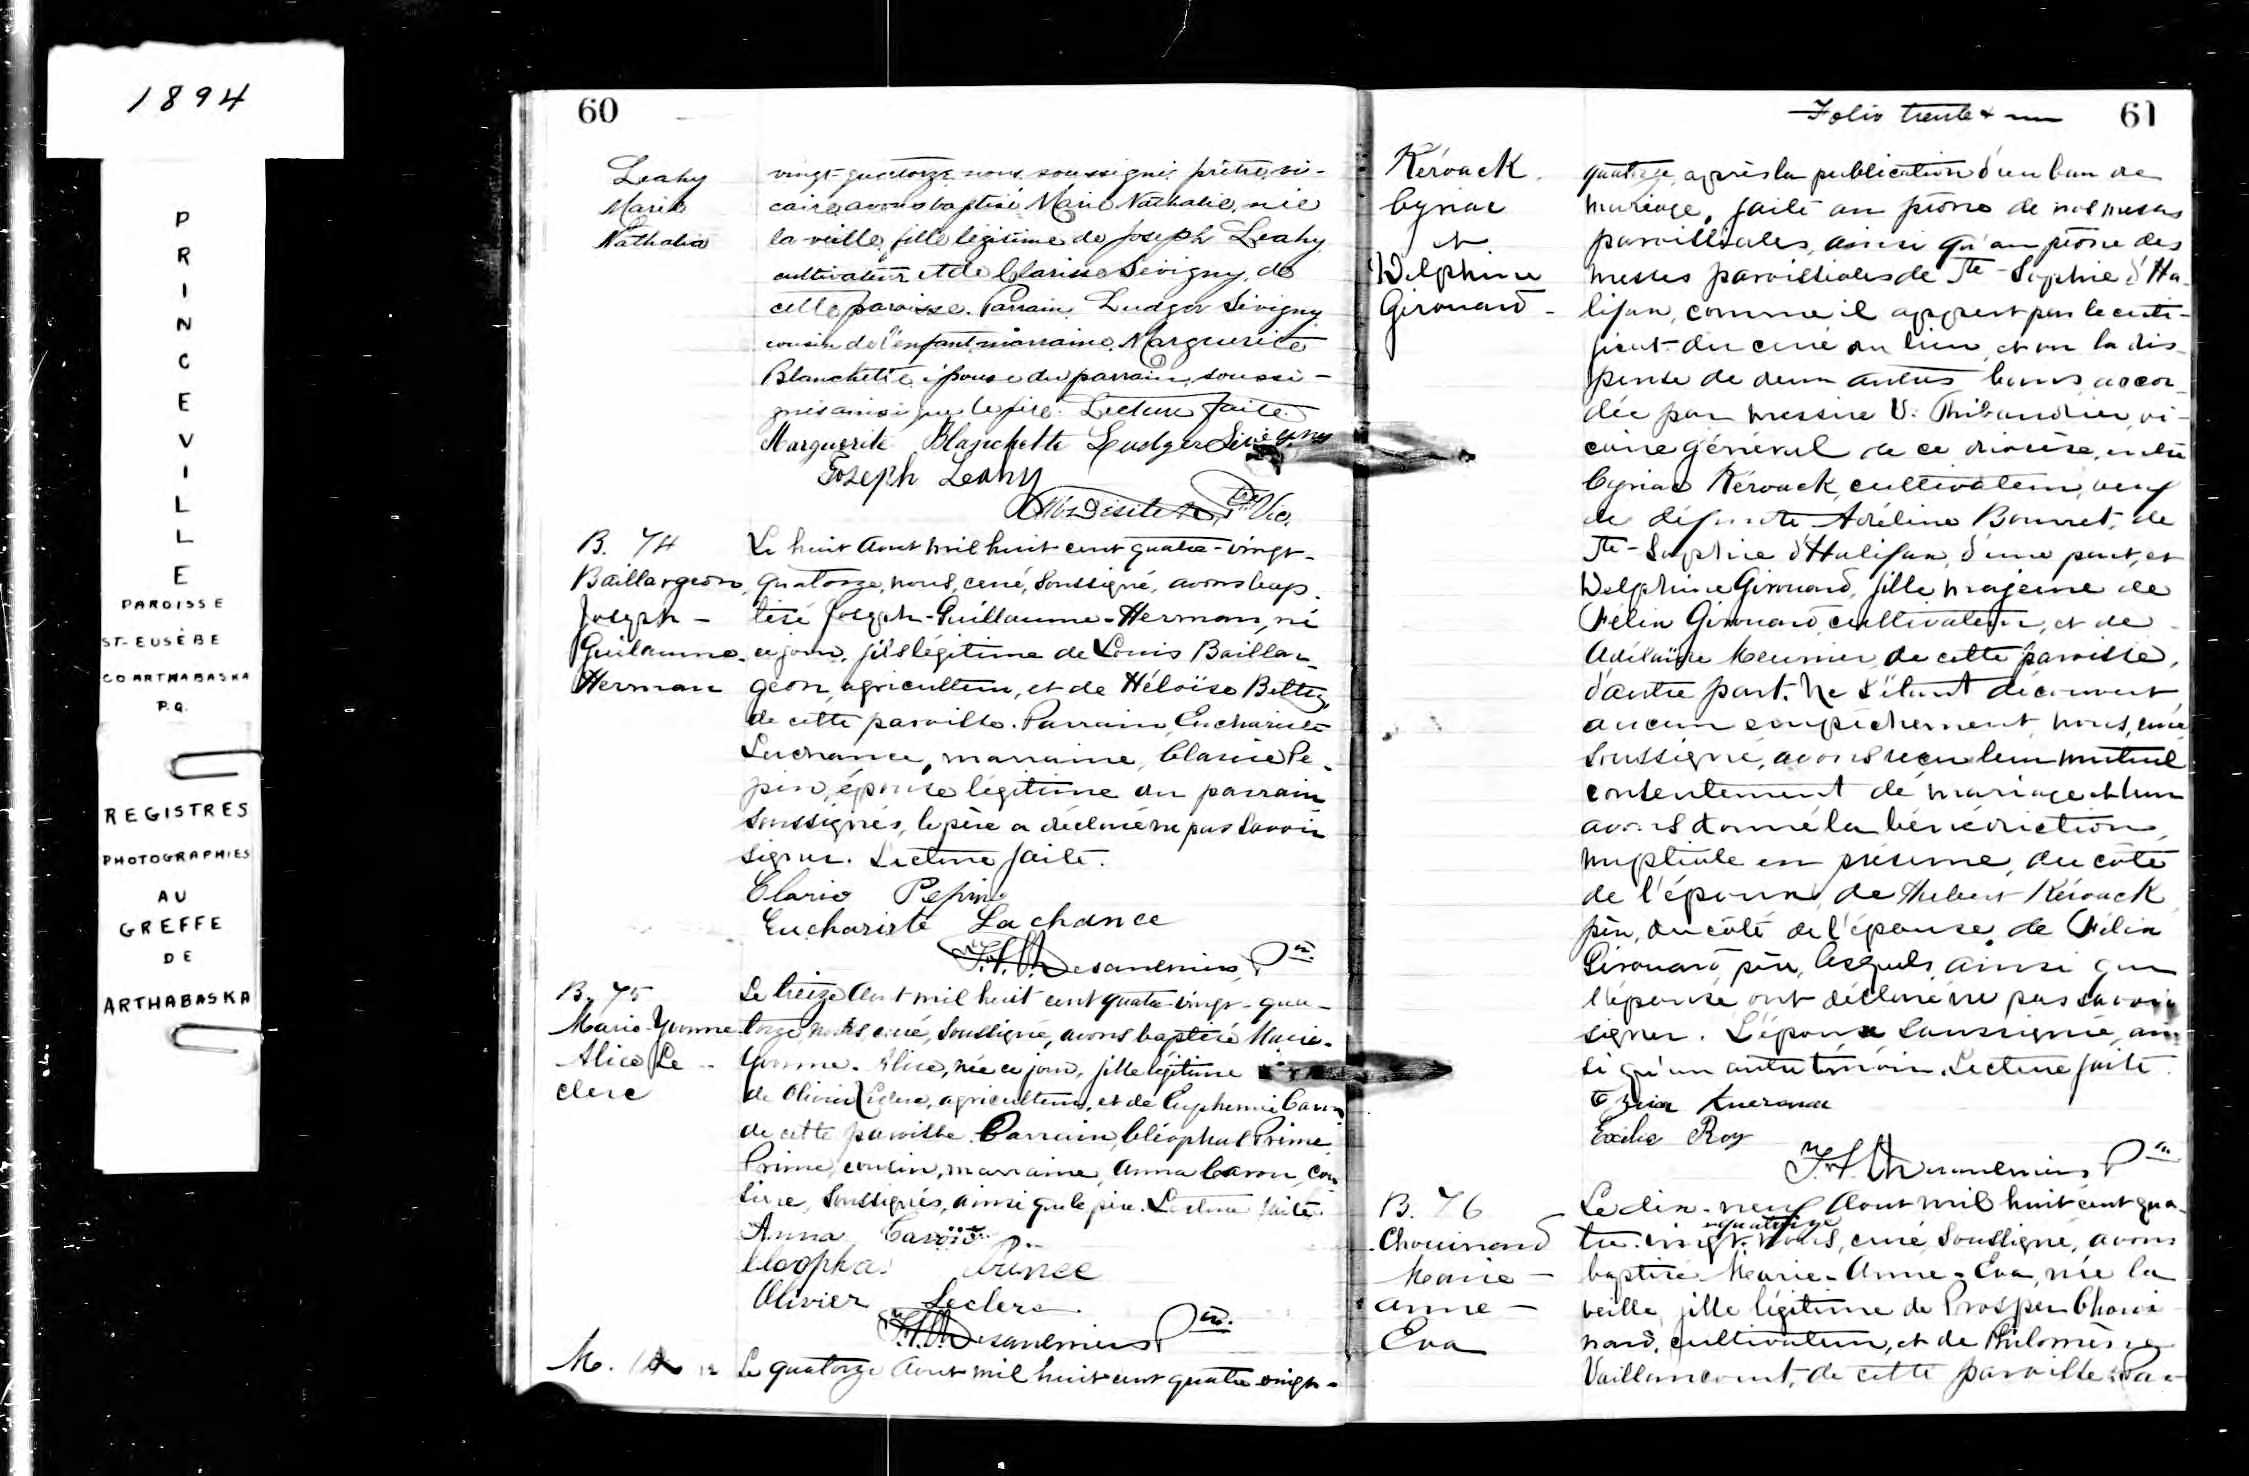 1894
PRINCEVILLE
PAROISSE
ST-EUSÈBE
CO ARTHABASKA
P.Q.
REGISTRES
PHOTOGRAPHIES
AU
GREFFE
DE
ARTHABASKA
60
Leahy
Marie
Nathalia
vingt-quatorze nous soussigné, prêtre, vi-
caire, avons baptisé Marie Nathalie, née
la veille, fille légitime de Joseph Leahy
cultivateur et de Clarisse Sévigny, de
cette paroisse. Parrain, Ludger Sévigny
cousin de l'enfant, marraine, Marguerite
Blanchette, épouse du parrain, soussi-
gnés ainsi que le père. Lecture faite.
Marguerite Blanchette Ludger Sévigny
Joseph Leahy
Ptre Vic.
B. 74
Baillargeon,
Joseph -
Guillaume.
Herman
Le huit Aout mil huit cent quatre-vingt-
quatorze, nous, curé, soussigné, avons bap-
tisé Joseph-Guillaume-Herman, né
ce jour, fils légitime de Louis Baillar-
geon, agriculteur, et de Héloïse Betty
de cette paroisse. Parrain, Euchariste
Lachance, marraine, Clarice Pe-
pin, épouse légitime du parrain
soussignés, le père a déclaré ne pas savoir
signer. Lecture faite.
Clario Pepin
Euchariste Lachance
Desaulniers, Ptre
B. 75
Marie-Yvonne
Alice Le-
clerc
Le treize Aout mil huit cent quatre-vingt-qua-
torze, nous curé, soussigné, avons baptisé Marie-
Yvonne-Alice, née ce jour, fille légitime
de Olivier Leclerc, agriculteur, et de Euphemie Caron
de cette paroisse. Parrain, Cléophas Prince
Prince, cousin, marraine, Anna Caron, cou-
sine, soussignés, ainsi que le père. Lecture faite.
Anna Caron
Cleophas Prince
Olivier Leclerc
Desaulniers Ptre
M. 12
Le quatorze Aout mil huit cent quatre vingt-
Folio trente & un 61
Kérouack
Cyriac
et
Delphine
Girouard -
quatorze, après la publication d'un ban de
mariage, faite au prône de nos messes
paroissiales, ainsi qu'au prône des
messes paroissiales de Ste-Sophie d'Ha-
lifax, comme il appert par le certi-
ficat du curé du lieu, et vu la dis-
pense de deux autres bans accor-
dée par messire U. Thibaudier, vi-
caire général de ce diocèse, entre
Cyriac Kérouack, cultivateur, veuf
de défunte Adéline Bourret, de
Ste-Sophie d'Halifax, d'une part, et
Delphine Girouard, fille majeure de
Félix Girouard, cultivateur, et de
Adélaïde Meunier, de cette paroisse,
d'autre part. Ne s'étant découvert
aucun empêchement, nous, curé
soussigné, avons reçu leur mutuel
consentement de mariage et leur
avons donné la bénédiction
nuptiale en présence, du côté
de l'époux, de Hubert Kérouack
père, du côté de l'épouse, de Félix
Girouard, père, lesquels, ainsi que
l'épouse, ont déclaré ne pas savoir
signer. L'époux soussigné, ain-
si qu'un autre témoin. Lecture faite.
Exilie Roy
Desaulniers Ptre
B. 76
Chouinard
Marie -
Anne -
Eva
Le dix-neuf Aout mil huit cent qua-
quatorze
tre-vingt-nous, curé, soussigné, avons
baptisé Marie-Anne-Eva, née la
veille, fille légitime de Prosper Choui-
nard, cultivateur, et de Philomène
Vaillancourt, de cette paroisse. Par-